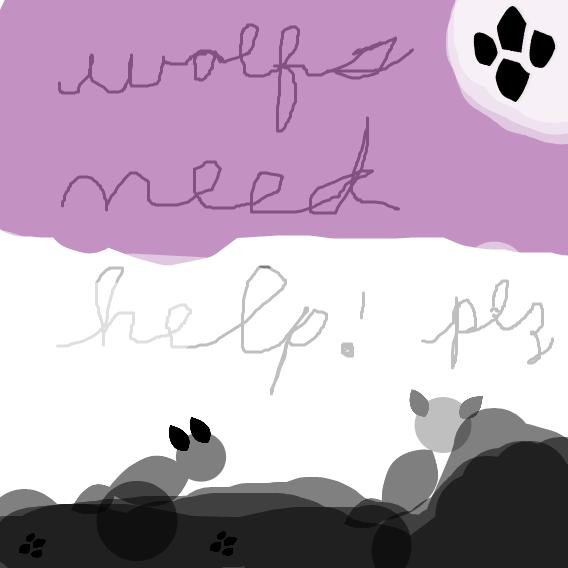 wolfs
need
help! plz